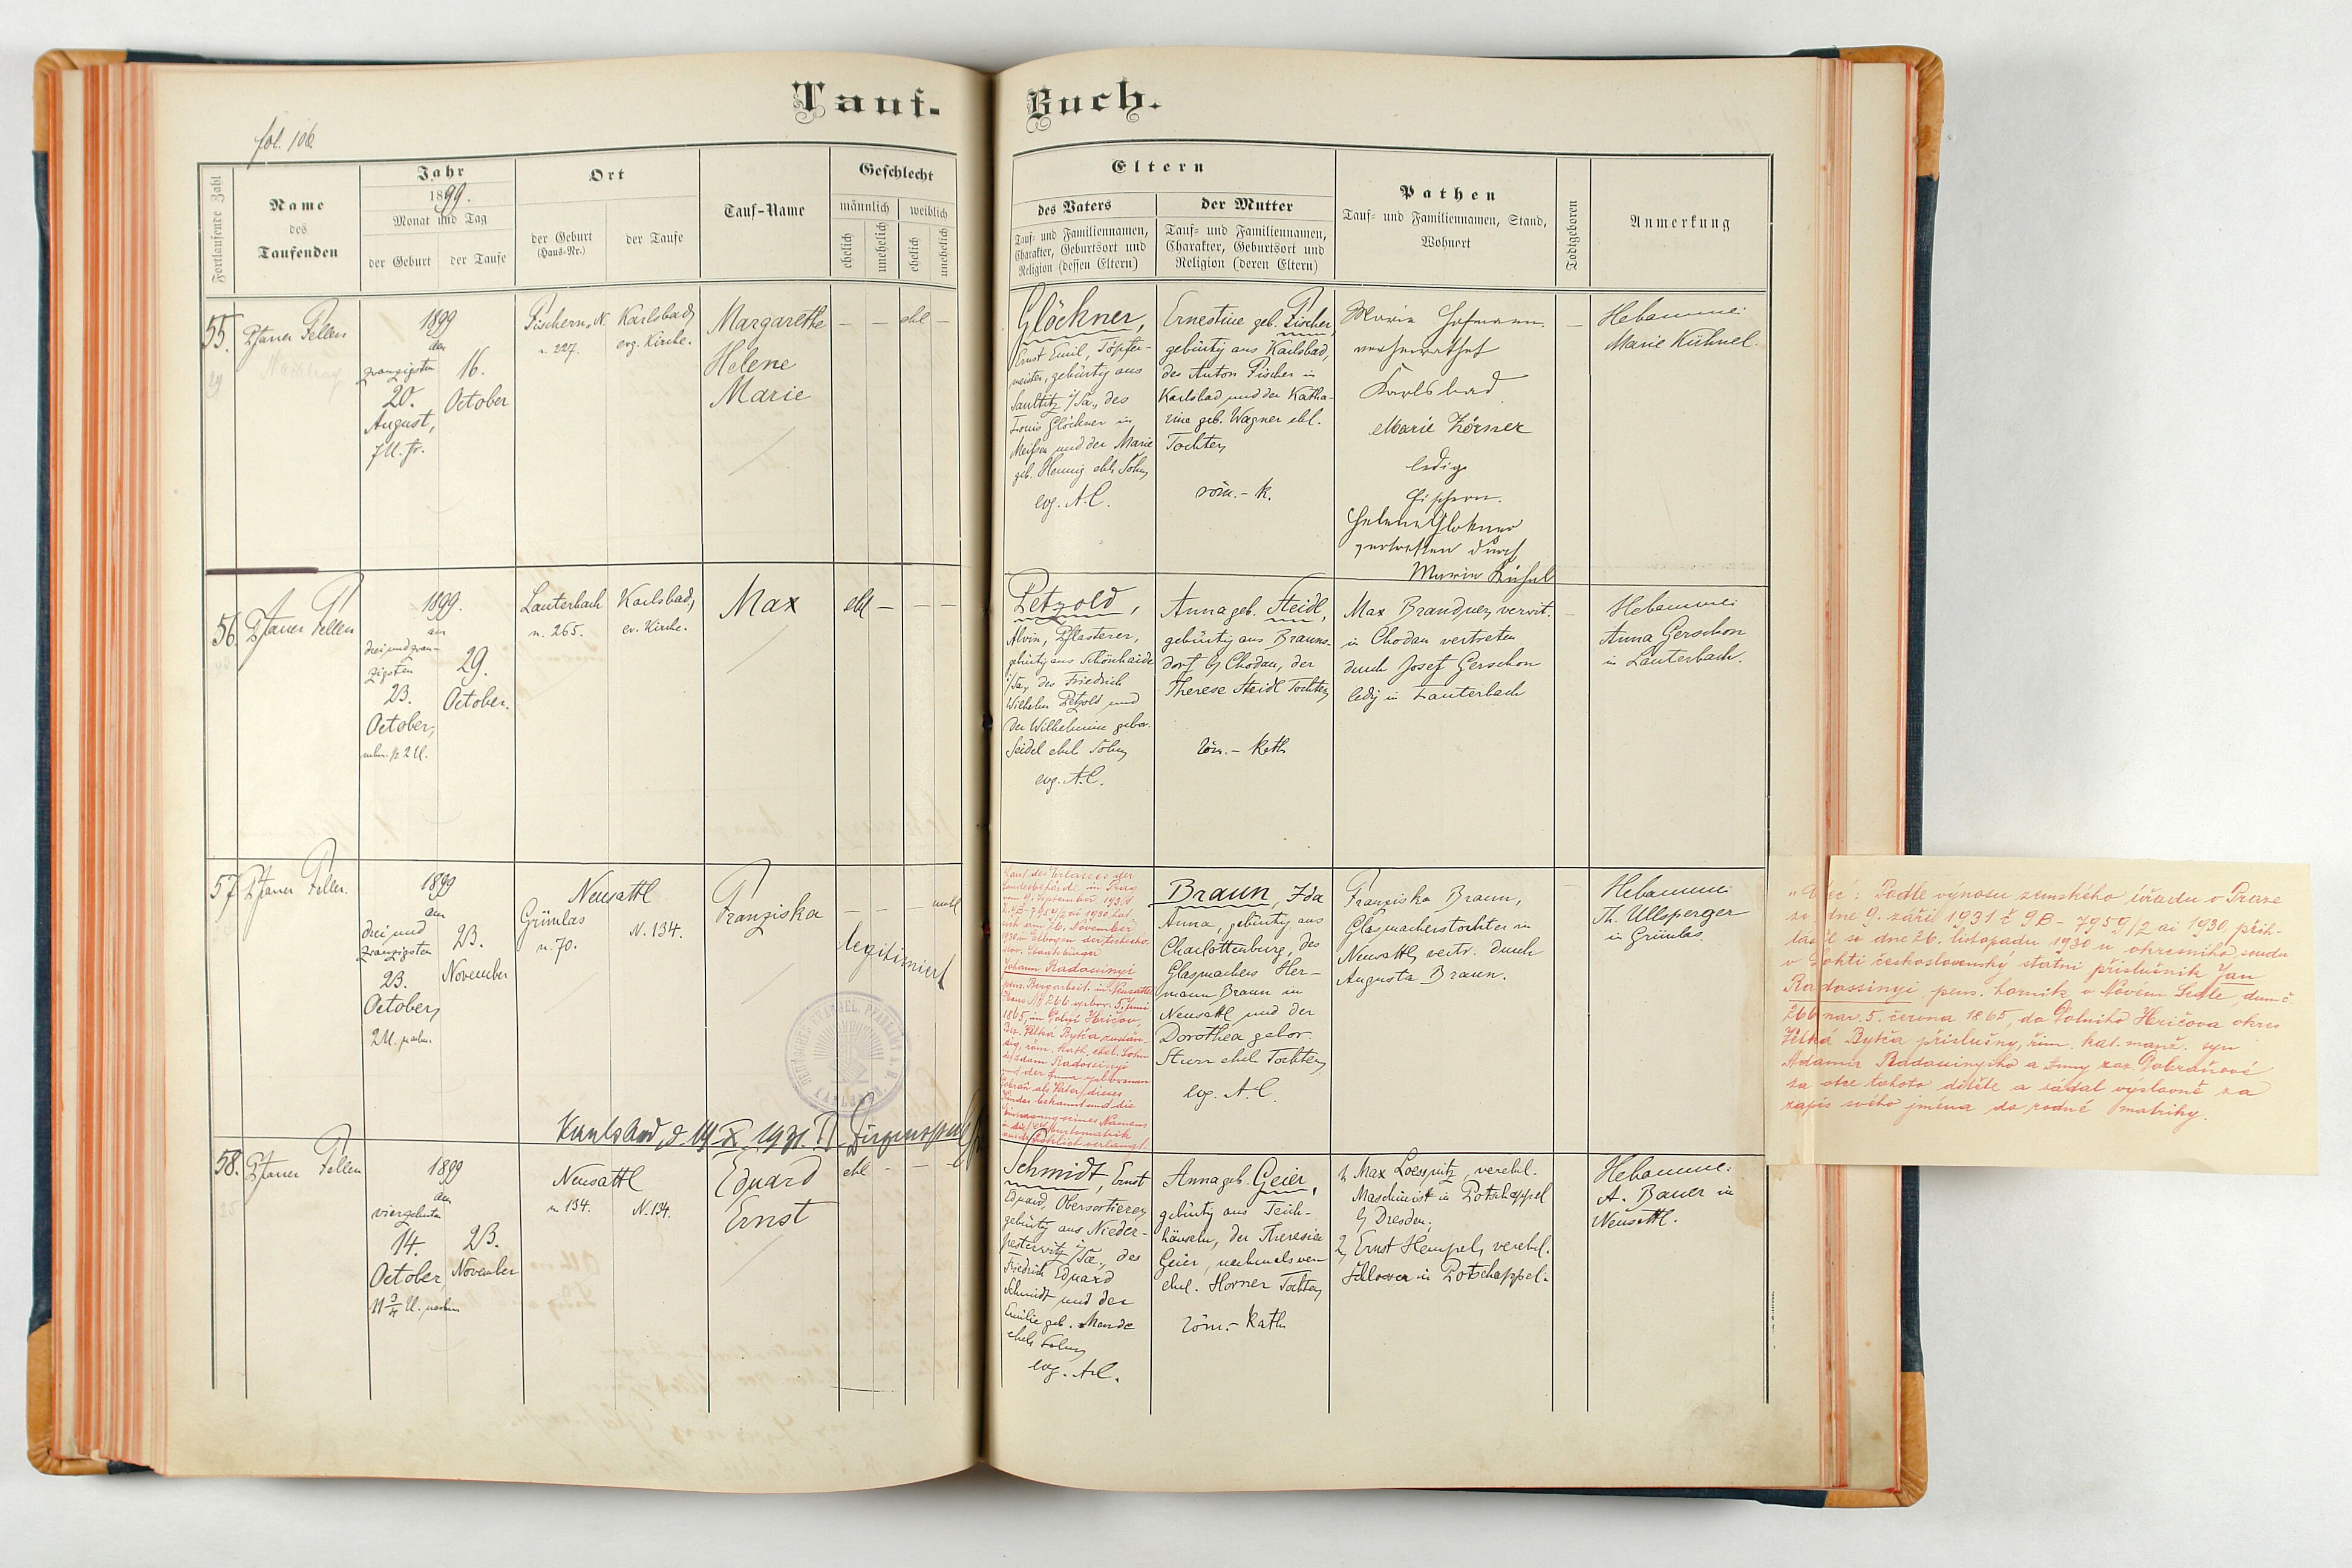 Tauf-
Buch.
fol. 106
Fortlaufende Zahl
Name
des
Taufenden
Jahr
1899.
Monat und Tag
der Geburt
der Taufe
Ort
der Geburt
(Haus-Nr.)
der Taufe
Tauf-Name
Geschlecht
männlich
weiblich
ehelich
unehelich
ehelich
unehelich
Eltern
des Vaters
Tauf- und Familiennamen,
Charakter, Geburtsort und
Religion (dessen Eltern)
der Mutter
Tauf- und Familiennamen,
Charakter, Geburtsort und
Religion (deren Eltern)
Pathen
Tauf- und Familiennamen, Stand,
Wohnort
Todtgeboren
Anmerkung
55.
Pfarrer Feller
1899
den
zwanzigsten
20.
August,
7 U. fr.
16.
October
Fischern, N.
n. 227.
Karlsbad,
evg. Kirche.
Margarethe
Helene
Marie
– – ehl –
Glöckner,
Ernst Emil, Töpfer-
meister, gebürtig aus
i/Sa., des
Louis Glöckner in
Meißen und der Marie
geb. Hennig ehl. Sohn,
evg. A.C.
Ernestine geb. Fischer,
gebürtig aus Karlsbad,
des Anton Fischer in
Karlsbad und der Katha-
rine geb. Wagner ehl.
Tochter,
röm.-k.
Maria Hofmann
verheirathet
Karlsbad.
Marie Körner
ledig
Fischern.
Helene Glökner
vertreten durch
Maria Kühnl
–
Hebamme:
Marie Kühnel.
56.
Pfarrer Feller
1899.
am
drei und zwan-
zigsten
23.
October,
nchm. ½ 2 U.
29.
October.
Lauterbach
n. 265.
Karlsbad,
ev. Kirche.
Max
ehl – – –
Petzold,
Alvin, Pflasterer,
gebürtig aus Schönhaide
i/Sa, des Friedrich
Wilhelm Petzold und
der Wilhelmine gebor.
Seidel ehel. Sohn,
evg. A.C.
Anna geb. Heidl,
gebürtig aus Brauns-
dorf b/ Chodau, der
Therese Heidl Tochter,
röm.-kath.
Max Brandner, verwit.
in Chodau vertreten
durch Josef Gerschon
ledig in Lauterbach
–
Hebamme:
Anna Gerschon
in Lauterbach.
57.
Pfarrer Feller.
1899
am
drei und
zwanzigsten
23.
October,
2 U. nachm.
23.
November
Neusattl
Grünlas
n. 70.
N. 134.
Franziska
– – – unehl
legitimiert
Laut des Erlasses der
Landesbehörde in Prag
vom 9. September 1931
Z. 9B-7959/2 ai 1930 hat
sich am 26. November
1930 in Elbogen der tschecho-
slov. Staatsbürger
Johann Radossinyi
pens. Bergarbeit. in Neusattl
Haus Nr. 266 gebor. 5. Juni
1865, in Dolni Hričov,
Bez. Velká Bytča zustän-
dig, röm. kath. ehel. Sohn
des Adam Radossinyi
und der Anna geborenen
Dobraň als Vater dieses
Kindes bekannt und die
Eintragung seines Namens
in die Geburtsmatrik
ausdrücklich verlangt.
Karlsbad, d. 14. X. 1931.
Braun, Ida
Anna, gebürtig aus
Charlottenburg, des
Glasmachers Her-
mann Braun in
Neusattl und der
Dorothea gebor.
Sturr ehel Tochter,
evg. A.C.
Franziska Braun,
Glasmacherstochter in
Neusattl, vertr. durch
Augusta Braun.
Hebamme
Th. Ullsperger
in Grünlas.
Podle výnosu zemského úřadu v Praze
ze dne 9. září 1931 č 9B-7959/2 ai 1930, přih-
lásil se dne 26. listopadu 1930 u okresního soudu
v Lokti československý státní příslušník Jan
Radossinyi pens. horník v Novém Sedle, dům č
266 nar. 5. června 1865, do Dolního Hričova okres
Velká Bytča příslušný, řím. kat. manž. syn
Adama Radossinyiho a Anny roz. Dobraňové
za otce tohoto dítěte a žádal výslovně za
zápis svého jména do rodné matriky.
58.
Pfarrer Feller
1899
den
vierzehnten
14.
October,
11 3/4 U. nachm
23.
November
Neusattl
n. 134.
N. 134.
Eduard
Ernst
ehl – –
Schmidt, Ernst
Eduard, Obersortierer,
gebürtig aus Nieder-
pesterwitz i/Sa., des
Friedrich Eduard
Schmidt und der
Emilie geb. Mende
ehel. Sohn,
evg. A.C.
Anna geb. Geier,
gebürtig aus Teich-
häuseln, der Theresia
Geier, nachmals ver-
ehel. Horner Tochter,
röm.-kath
1, Max Loessnitz, verehel.
Maschinist in Potschappel
b/ Dresden;
2, Ernst Hempel, verehel.
Schlosser in Potschappel.
Hebamme:
A. Bauer in
Neusattl.